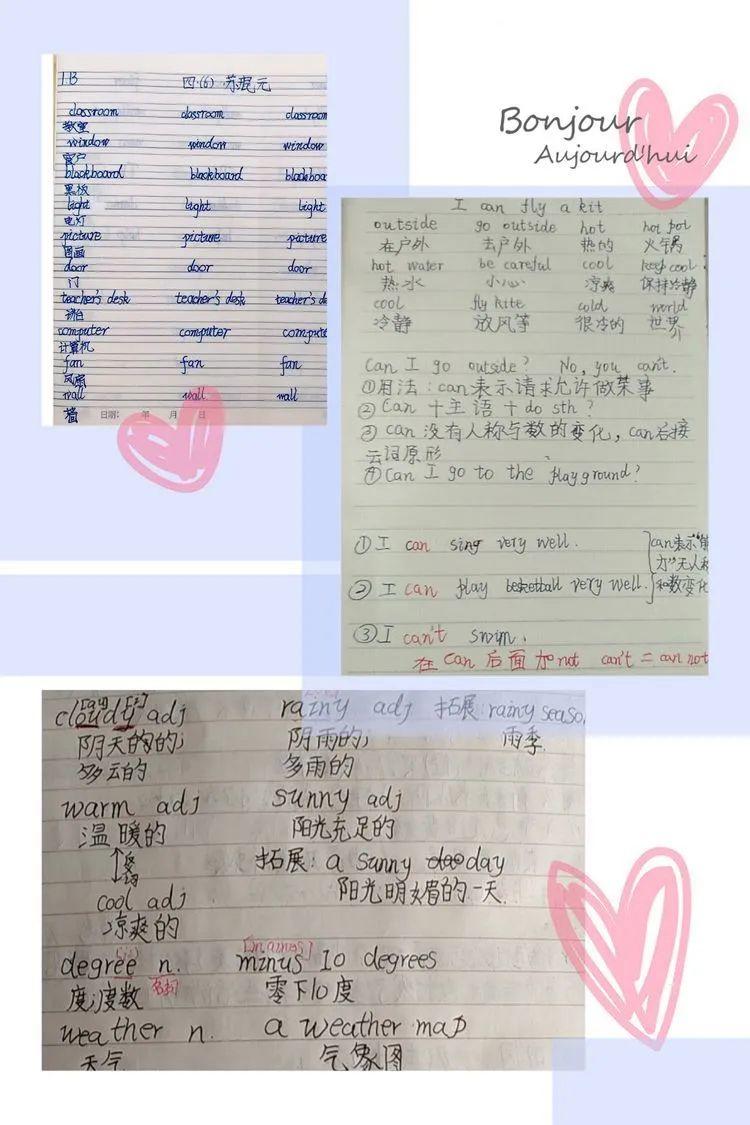 Bonjour
Aujourd'hui
1.13 四.(6) 苏琨元
classroom classroom classroom
教室
window window window
窗户
blackboard blackboard blackboa
黑板
light light light
电灯
picture picture picture
图画
door door door
门
teacher's desk teacher's desk teacher's d
讲台
computer computer compute
计算机
fan fan fan
风扇
wall wall wall
墙 日期: 年 月 日
I can fly a kit
outside go outside hot hot pot
在户外 去户外 热的 火锅
hot water be careful cool keep cool
热水 小心 凉爽 保持冷静
cool fly kite cold world
冷静 放风筝 很冷的 世界
Can I go outside? No, you can't.
①用法:can表示请求允许做某事
② Can 十主语十do sth?
③ can 没有人称与数的变化,can后接
云词原形
④Can I go to the playground?
①I can sing very well. can表示"能
力"无人称
② I can play besketball very well. 和数变化
③I can't swim.
在 can 后面加not can't = can not
cloudy adj rainy adj 拓展:rainy seaso
阴天的的; 阴雨的; 雨季.
多云的 多雨的
warm adj sunny adj
温暖的 阳光充足的
拓展: a sunny day
cool adj 阳光明媚的一天.
凉爽的
degree n. minus 10 degrees
度;度数 名词 零下10度
weather n. a weather map
天气 气象图